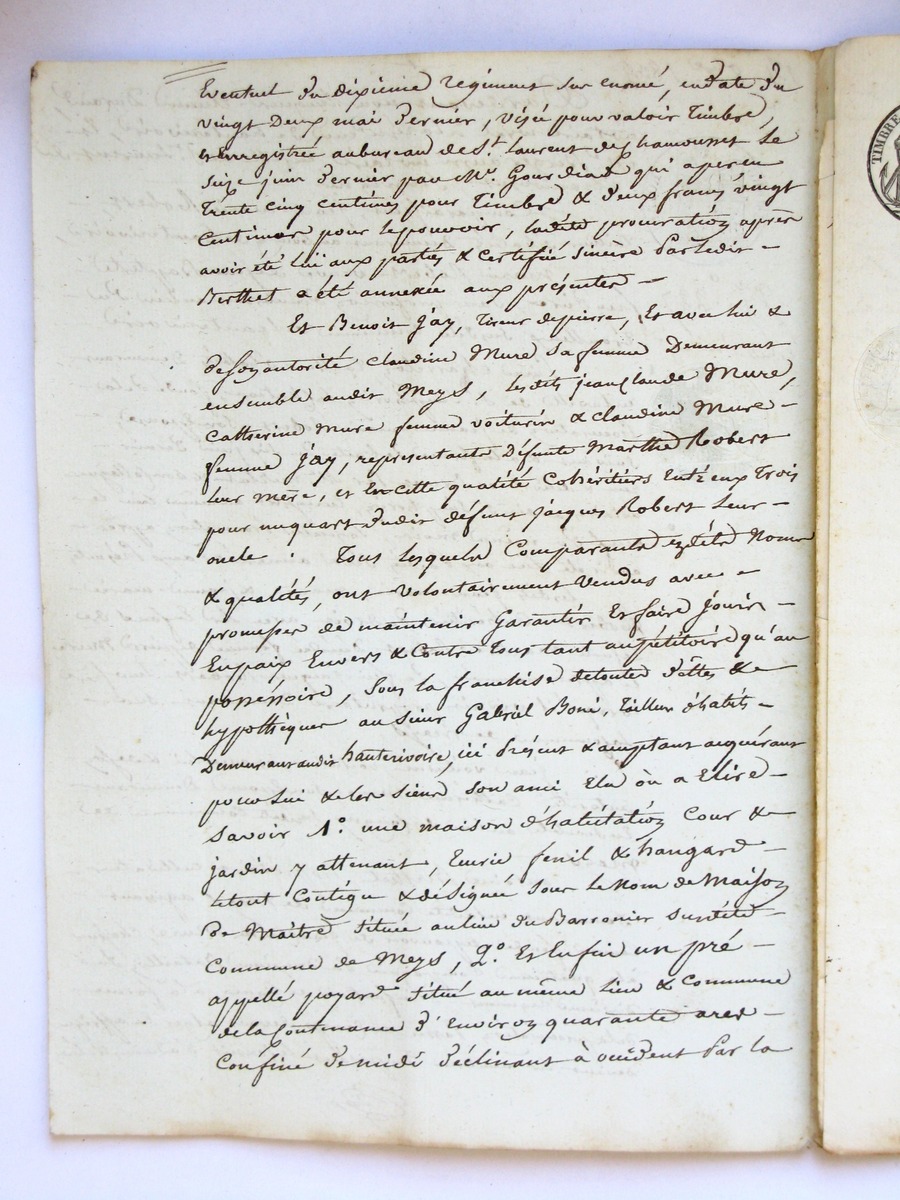 Eventuel du dixieme regiment sus enoncé, en date du
vingt Deux mai dernier, visée pour valoir Timbre,
et enregistrée au bureau de St. Laurent de Chamousset le
Seize juin dernier par Mr. Gourdiat qui a perçu
Trente cinq centimes pour Timbre & deux francs vingt
Centimes pour le pouvoir, ladite procuration après
avoir été lui aux parties & certifiée sincère par ledit -
Berthet a été annexée aux présentes -
Et Benoit Jay, tireur de pierre, Et avec lui &
de son autorité Claudine Mure sa femme Demeurant
ensemble audit Meys, lesdits jean Claude Mure,
Catherine Mure femme voiturin & Claudine Mure -
femme Jay, representants Défunte Marthe Robert
leur mère, et En cette qualité Cohéritiers Entr'eux Trois
pour un quart dudit défunt Jacques Robert Leur -
oncle . Tous lesquels Comparants ezdits Noms
& qualités, ont volontairement Vendus avec -
promesse de maintenir Garantir Et faire jouir -
En paix Envers & Contre tous tant au pétitoire qu'au
possessoire, Sous la franchise de toutes dettes &
hypothèques au sieur Gabriel Boni, Tailleur d'habits -
Demeurant audit hauterivoire, ici présent & acceptant acquérant
pour lui & les siens son ami Elu ou a Elire -
Savoir 1.° une maison d'habitation Cour &
jardin y attenant, Ecurie fenil & hangard -
le tout Contigu & désignée sous le Nom de Maison
de Maître située au lieu du Barronier susdite -
Commune de Meys, 2.° Et Enfin un pré -
appellé poyard situé au même Lieu & Commune
de la Contenance d'Environ quarante ares -
Confiné de midi déclinant à occident par la
TIMBRE